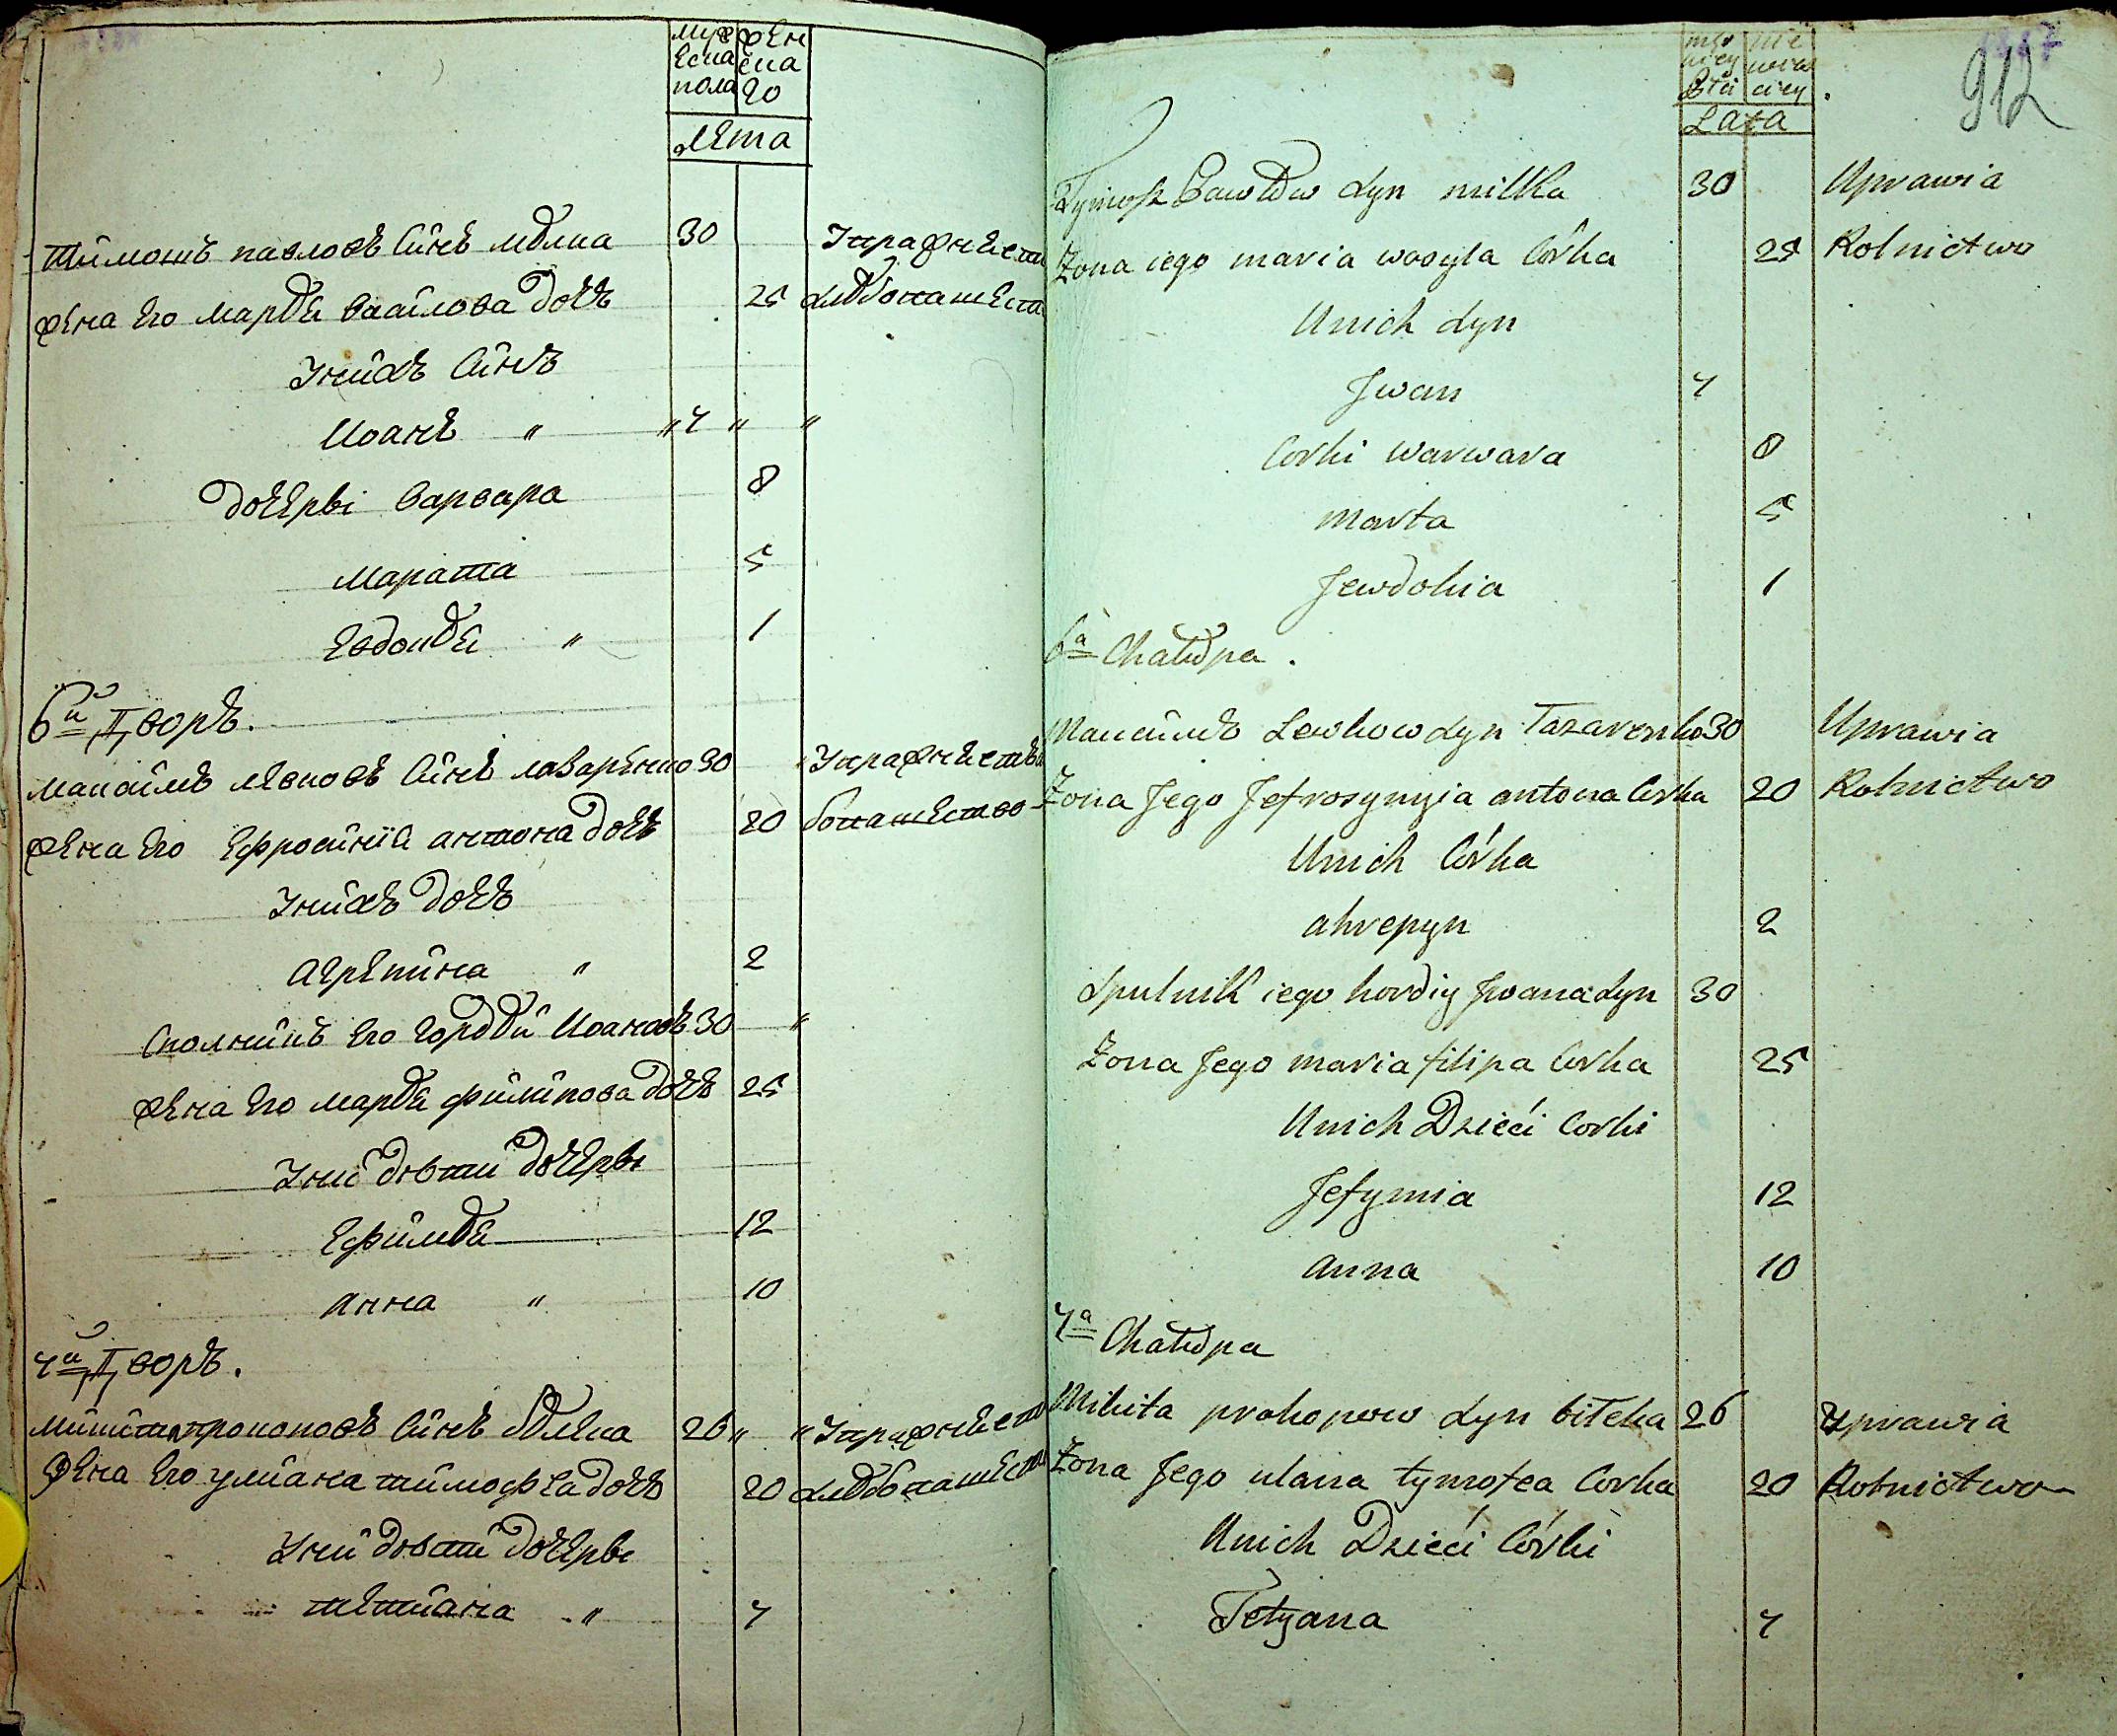 муж ска пола
жен ска го
лета
тимошъ павловъ синъ мѣлка 30 упражнает
жена его мариѣ василова дочъ 25 хлѣбопашест
у нихъ синъ
Иоанъ " " 7 " "
дочери варвара 8
марѳта 5
Евдокиѣ " 1
6й Дворъ.
максимъ левковъ синъ лазаренко 30 упражнаетъ
жена его ефросиния антона дочъ 20 бопашество
у нихъ дочъ
агрепина " 2
сполникъ его гордѣй Иоановъ 30 "
жена его мариѣ филипова дочъ 25
у них дѣти дочери
ефимиѣ 12
анна " 10
7й Дворъ.
микита прокоповъ синъ бѣлека 26 " " упражнает
жена его улиана тимофеа дочъ 20 хлѣбопашест
у них дѣти дочери
тетиана " 7
912
Lata
Tymosz Pawłów Syn milka 30 Uprawia
Żona iego maria wasyla Córka 25 Rolnictwo
Unich Syn
Jwan 7
Corki warwara 8
marta 5
Jewdokia 1
6a Chałupa.
Maксимъ Lewkow Syn Lazarenko 30 Uprawia
Żona Jego Jefrosynyia antona Corka 20 Rolnictwo
Unich Córka
ahrepyn 2
Spulnik iego hordiy Jwana Syn 30
Żona Jego maria filipa Corka 25
Unich Dzieći Corki
Jefymia 12
anna 10
7a Chałupa
Mikita prokopow Syn biłeka 26 Uprawia
Żona Jego ulana tymofea Corka 20 Rolnictwo
Unich Dzieći Córki
Tetyana 7